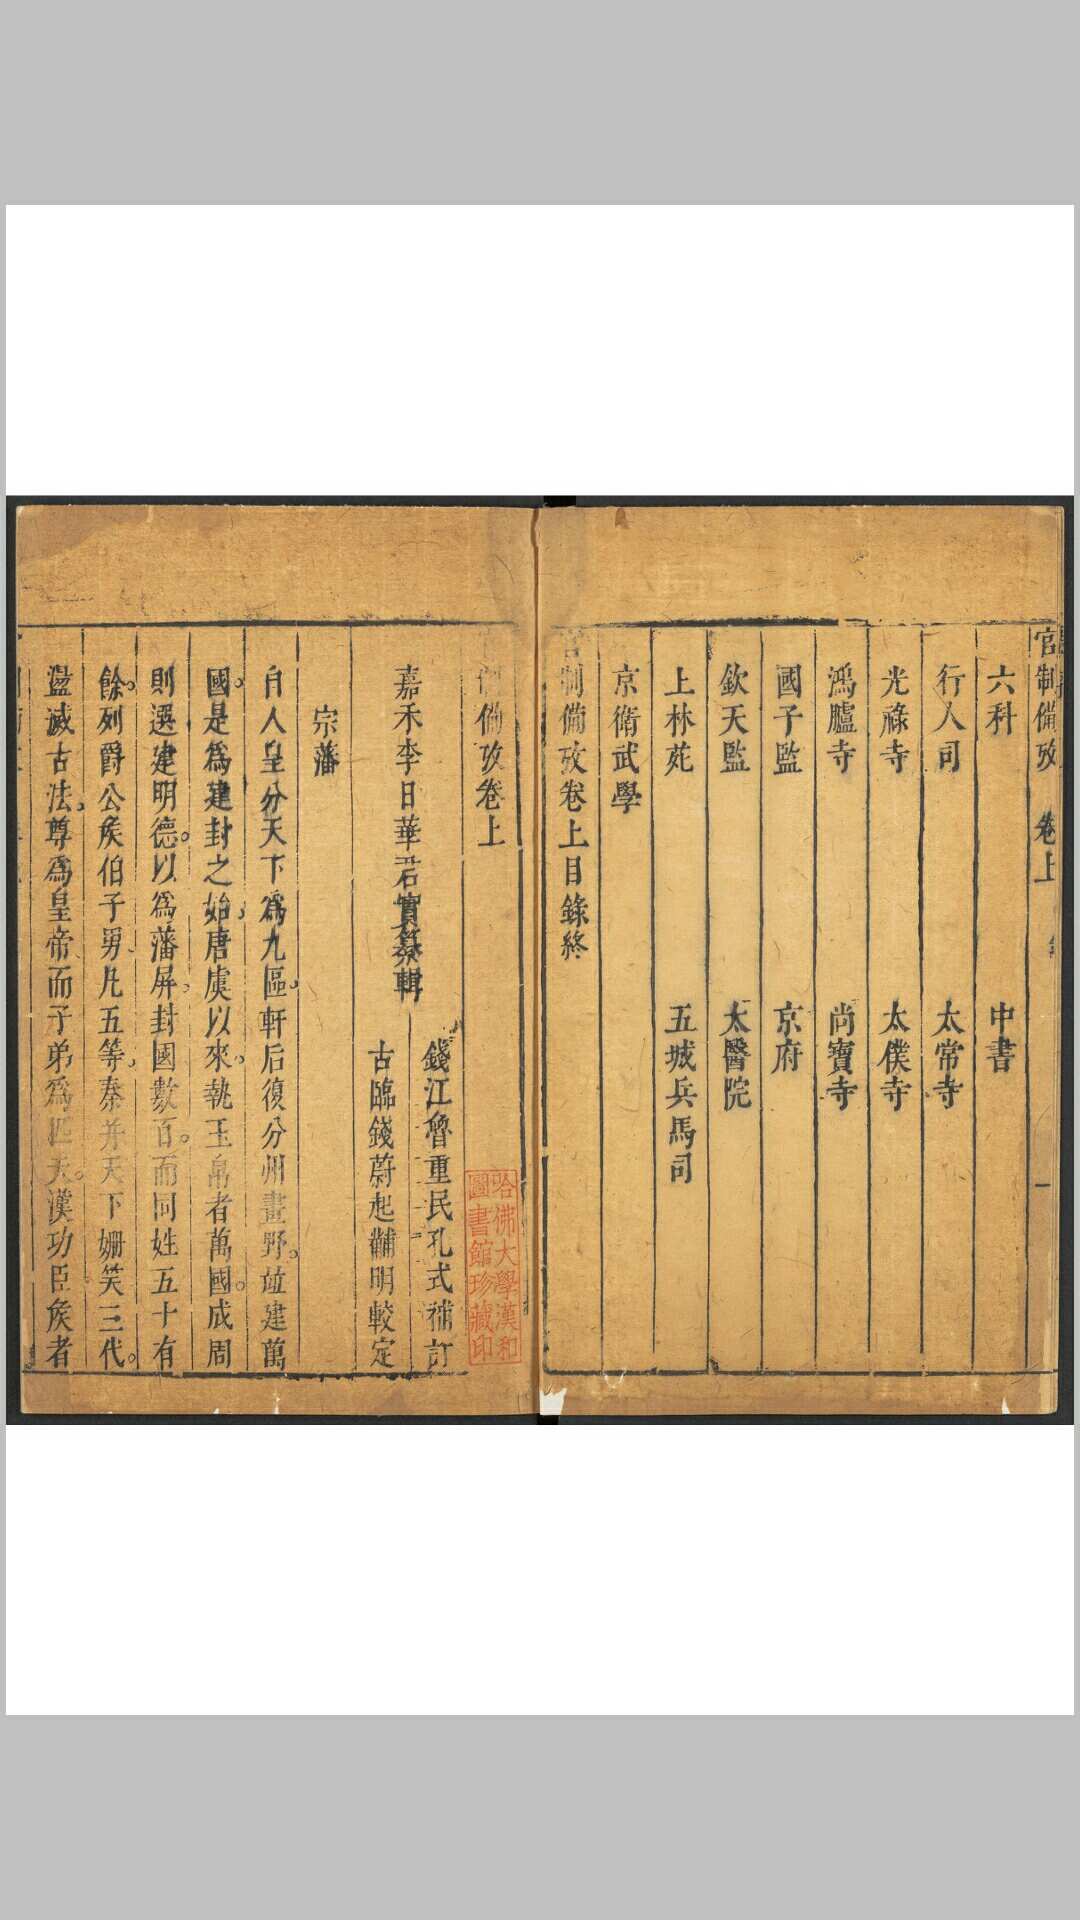 官制備攷 卷上 一
六科 中書
行人司 太常寺
光祿寺 太僕寺
鴻臚寺 尚寶寺
國子監 京府
欽天監 太醫院
上林苑 五城兵馬司
京衛武學
制備攷卷上目錄終
制備攷卷上
嘉禾李日華君實纂輯
錢江魯重民孔式補訂
古臨錢蔚起黼明較定
宗藩
自人皇分天下爲九區，軒后復分州畫野。竝建萬
國。是爲建封之始，唐虞以來，執玉帛者萬國。成周
則選建明德。以爲藩屏，封國數百。而同姓五十有
餘。列爵公矦伯子男，凡五等，秦并天下姍笑三代。
盪滅古法，尊爲皇帝而子弟爲匹夫。漢功臣矦者
哈佛大學漢和
圖書館珍藏印